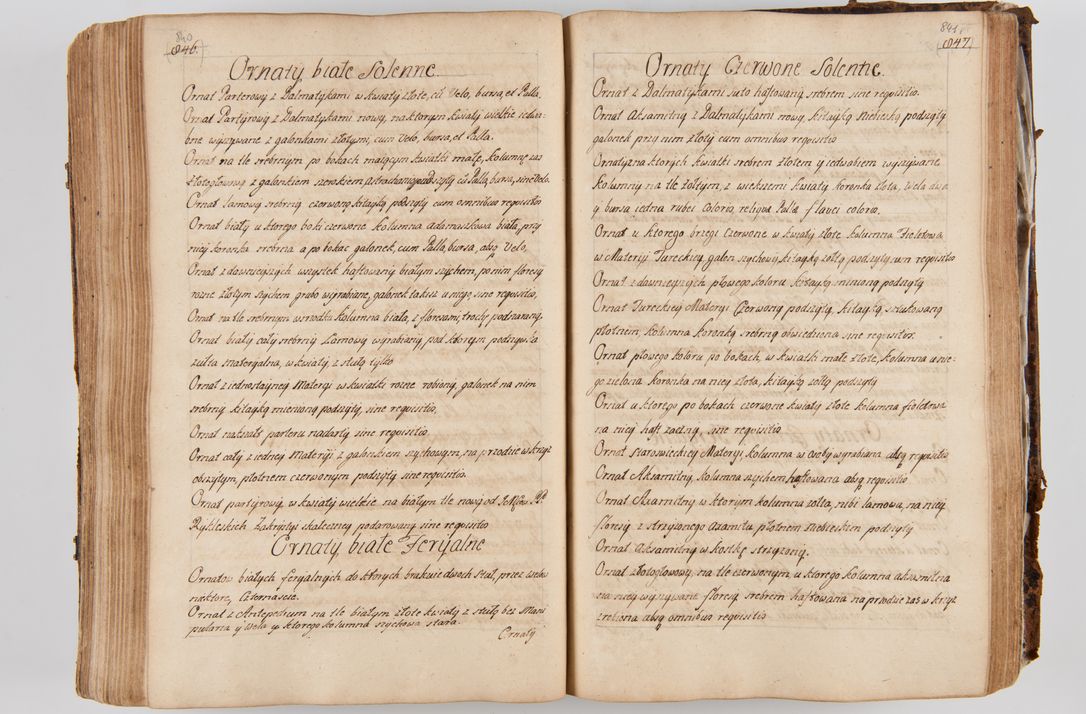 840
846.
Ornaty białe Solenne.
Ornat Parterowy z Dalmatykami w kwiaty złote, cũ Velo, bursa, et Palla,
Ornat Partyrowy z Dalmatykami nowy, na ktorym kwiaty wielkie iedwa-
bne wyszywane z galonkami złotymi, cum Velo, bursa, et Palla.
Ornat na tle srebrnym po bokach maiącym kwiatki małe, Kolumnę zas
złotogłowną z galonkiem szerokiem podszyty cũ Palla, bursa, sine Velo.
Ornat Lamowy srebrny czerwoną kitayką podszyty cum omnibus requisitis
Ornat biały u ktorego boki czerwone Kolumna adamaszkowa biała, przy
niey koronka srebrna a po bokac galonek, cum Palla, bursa, absq Velo,
Ornat z dawnieyszych wszystek haftowany białym szychem, po nim floresy
rozne złotym szychem grubo wyrabiane, galonek takisz u niego, sine requisitis,
Ornat na tle srebrnym wsrzodku Kolumna biała, z floresami, trochę podszarzany,
Ornat biały cały srebrny Lamowy wyrabiany, pod ktorym podszywka
zułta materyalna, w kwiaty, z stułą tylko
Ornat z iednostayney Materyi w kwiatki rozne robiony, galonek na nim
srebrny kitayką mienioną podszyty, sine requisitis,
Ornat nakształt parteru nadarty sine requisitis
Ornat cały z iedney materyi z galonkiem szychowym, na przodzie w krzyż
obszytym, płotnem czerwonym podszyty sine requisitis.
Ornat partyrowy w kwiaty wielkie na białym tle nowy od PP.
Zakrystyi skaleczney podarowany sine requisitis
Ornaty białe Feryalne
Ornatow białych feryalnych do ktorych brakuie dwoch Stuł, przez welow
niektore, czternascie.
Ornat z Antepedium na tle białym złote kwiaty z stułą bez Mani
pularza y Wela u ktorego kolumna szychowa stara.
Ornaty
841
847.
Ornaty Czerwone Solenne.
Ornat z Dalmatykami suto haftowany srebrem sine requisitis.
Ornat Aksamitny z Dalmatykami nowy, kitayką niebieską podszyty
galonek przy nim złoty cum omnibus requisitis
Ornaty na ktorych kwiatki srebrem złotem y iedwabiem wyszywane
kolumny na tle żółtym, z większemi kwiaty koronka złota, wela dwa
y bursa iedna rubei coloris, reliqua Palla flavei coloris.
Ornat u ktorego brzegi Czerwone w kwiaty złote kolumna Fioletowa
w Materyi Tureckiey, galon szychowy, kitayką zołtą podszyty, cum requisitis
Ornat z dawnieyszych płowego koloru kitayką mienioną podszyty
Ornat Tureckiey Materyi Czerwony podszyty, kitayką sztukowaną
płotnem, kolumna koronką srebrną obwiedziona sine requisitis.
Ornat płowego koloru po bokach, w kwiatki małe złote, kolumna u nie-
go zielona koronka na niey złota, kitayką zołtą podszyty
Ornat u ktorego po bokach czerwone kwiaty złote kolumna fioletowa
na niey haft zacny, sine requisitis
Ornat Starowieckiey Materyi kolumna w osoby wyrabiana absq requisitis
Ornat Aksamitny, Kolumna szychem haftowana absq requisitis
Ornat Aksamitny w ktorym kolumna zołta, nibi Lamowa, na niey
floresy z strzyżonego axamitu płotnem niebieskim podszyty
Ornat Aksamitny w kostkę strzyżony.
Ornat złotogłowowy, na tle czerwonym, u ktorego kolumna aksamitna
na niey wyszywane floresy srebrem haftowana na przodzie zas w krzyż
zrobiona absq omnibus requisitis